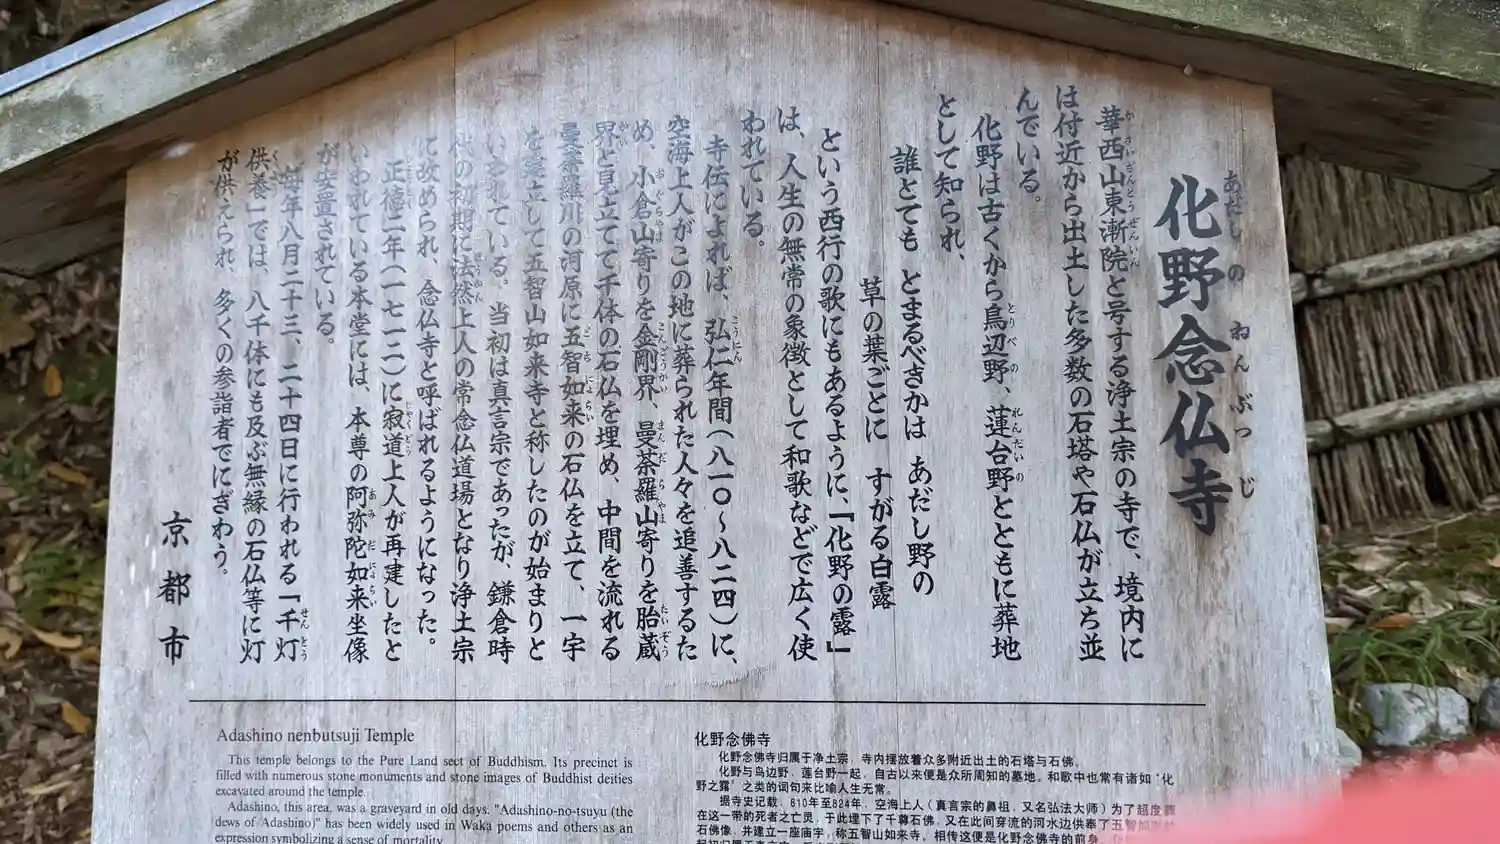 化野念仏寺
あだしの ねんぶつじ
華西山東漸院と号する浄土宗の寺で、境内に
は付近から出土した多数の石塔や石仏が立ち並
んでいる。
化野は古くから鳥辺野、蓮台野とともに葬地
として知られ、
誰とても とまるべきかは あだし野の
草の葉ごとに すがる白露
という西行の歌にもあるように、「化野の露」
は、人生の無常の象徴として和歌などで広く使
われている。
寺伝によれば、弘仁年間(八一〇〜八二四)に、
空海上人がこの地に葬られた人々を追善するた
め、小倉山寄りを金剛界、曼荼羅山寄りを胎蔵
界と見立てて千体の石仏を埋め、中間を流れる
曼荼羅川の河原に五智如来の石仏を立て、一宇
を建立して五智山如来寺と称したのが始まりと
いわれている。当初は真言宗であったが、鎌倉時
代の初期に法然上人の常念仏道場となり浄土宗
に改められ、念仏寺と呼ばれるようになった。
正徳二年(一七一二)に寂道上人が再建したと
いわれている本堂には、本尊の阿弥陀如来坐像
が安置されている。
毎年八月二十三、二十四日に行われる「千灯
供養」では、八千体にも及ぶ無縁の石仏等に灯
が供えられ、多くの参詣者でにぎわう。
京都市
Adashino nenbutsuji Temple
This temple belongs to the Pure Land sect of Buddhism. Its precinct is
filled with numerous stone monuments and stone images of Buddhist deities
excavated around the temple.
Adashino, this area, was a graveyard in old days. "Adashino-no-tsuyu (the
dews of Adashino)" has been widely used in Waka poems and others as an
expression symbolizing a sense of mortality.
化野念佛寺
化野念佛寺归属于净土宗，寺内摆放着众多附近出土的石塔与石佛。
化野与鸟边野，莲台野一起，自古以来便是众所周知的墓地。和歌中也常有诸如“化
野之露”之类的词句来比喻人生无常。
据寺史记载，810年至824年，空海上人（真言宗的鼻祖，又名弘法大师）为了超度葬
在这一带的死者之亡灵，于此埋下了千尊石佛，又在此间穿流的河水边供奉了五智如来
石佛像，并建立一座庙宇，称五智山如来寺。相传这便是化野念佛寺的前身。